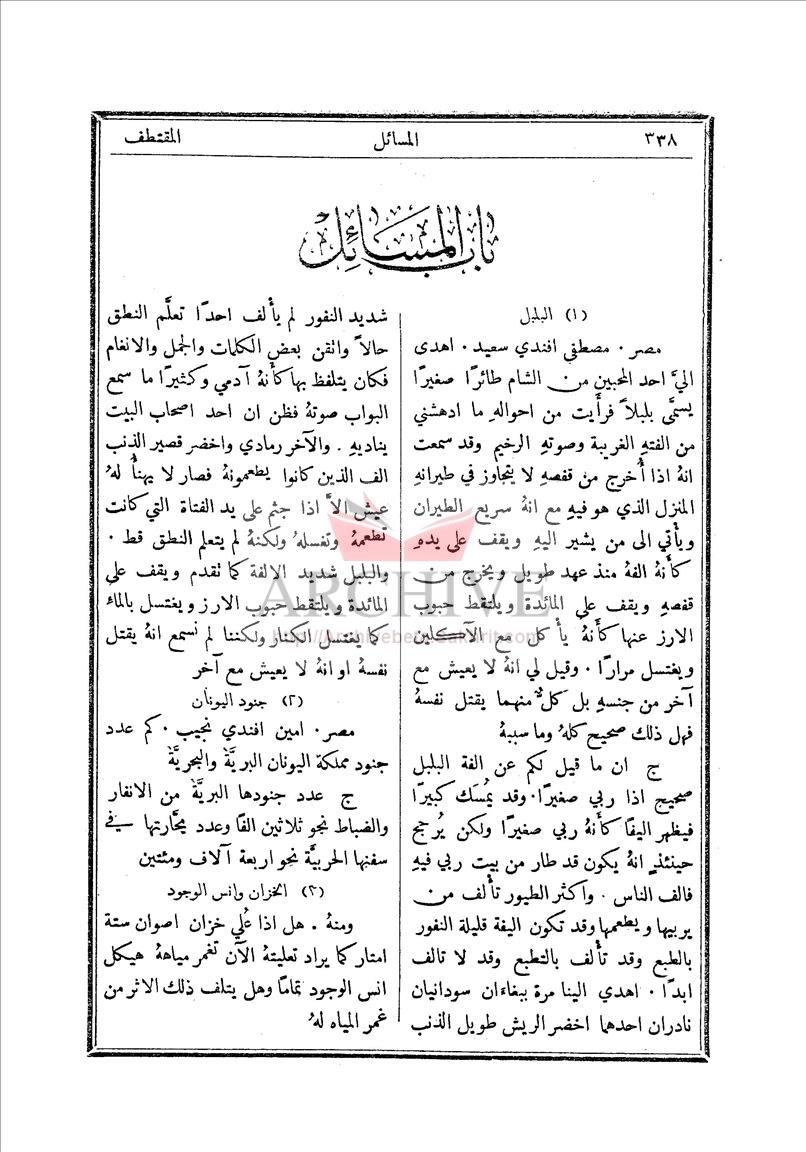 ٣٣٨
المسائل
المقتطف
باب المسائل
(١) البلبل
مصر . مصطفي افندي سعيد . اهدى
اليَّ احد المحبين من الشام طائرًا صغيرًا
يسمَّى بلبلاً فرأيت من احوالهِ ما ادهشني
من الفته الغريبة وصوتهِ الرخيم وقد سمعت
انهُ اذا أُخرج من قفصهِ لا يتجاوز في طيرانهِ
المنزل الذي هو فيهِ مع انهُ سريع الطيران
ويأتي الى من يشير اليهِ ويقف على يدهِ
كأَنهُ الفهُ منذ عهد طويل ويخرج من
قفصهِ ويقف على المائدة ويلتقط حبوب
الارز عنها كأَنهُ يأكل مع الآكلين
ويغتسل مرارًا . وقيل لي انهُ لا يعيش مع
آخر من جنسهِ بل كلٌّ منهما يقتل نفسهُ
فهل ذلك صحيح كلهُ وما سببهُ
ج ان ما قيل لكم عن الفة البلبل
صحيح اذا ربي صغيرًا . وقد يُمسَك كبيرًا
فيظهر اليفًا كأَنهُ ربي صغيرًا ولكن يُرجح
حينئذٍ انهُ يكون قد طار من بيت ربي فيهِ
فالف الناس . واكثر الطيور تأْلف من
يربيها ويطعمها وقد تكون اليفة قليلة النفور
بالطبع وقد تأْلف بالتطبع وقد لا تالف
ابدًا . اهدي الينا مرة ببغاءَان سودانيان
نادران احدهما اخضر الريش طويل الذنب
شديد النفور لم يأْلف احدًا تعلَّم النطق
حالاً واتقن بعض الكلمات والجمل والانغام
فكان يتلفظ بها كأَنهُ آدمي وكثيرًا ما سمع
البواب صوتهُ فظن ان احد اصحاب البيت
يناديهِ . والآخر رمادي واخضر قصير الذنب
الف الذين كانوا يطعمونهُ فصار لا يهنأُ لهُ
عيش الاَّ اذا جثم على يد الفتاة التي كانت
تطعمهُ وتغسلهُ ولكنهُ لم يتعلم النطق قط .
والبلبل شديد الالفة كما نقدم ويقف على
المائدة ويلتقط حبوب الارز ويغتسل بالماء
كما يغتسل الكنار ولكننا لم نسمع انهُ يقتل
نفسهُ او انهُ لا يعيش مع آخر
(٢) جنود اليونان
مصر . امين افندي نجيب . كم عدد
جنود مملكة اليونان البريَّة والبحريَّة
ج عدد جنودها البريَّة من الانفار
والضباط نحو ثلاثين الفًا وعدد بحَّارتها في
سفنها الحربيَّة نحو اربعة آلاف ومئتين
(٣) الخزان وانس الوجود
ومنهُ . هل اذا عُلي خزان اصوان ستة
امتار كما يراد تعليتهُ الآن تغمر مياههُ هيكل
انس الوجود تمامًا وهل يتلف ذلك الاثر من
غمر المياه لهُ
ARCHIVE